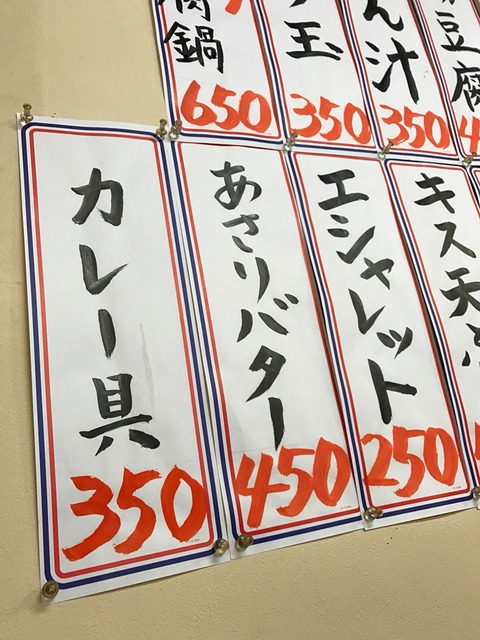 鍋
650
玉
350
ん汁
350
豆腐
カレー具
350
あさりバター
450
エシャレット
250
キス天